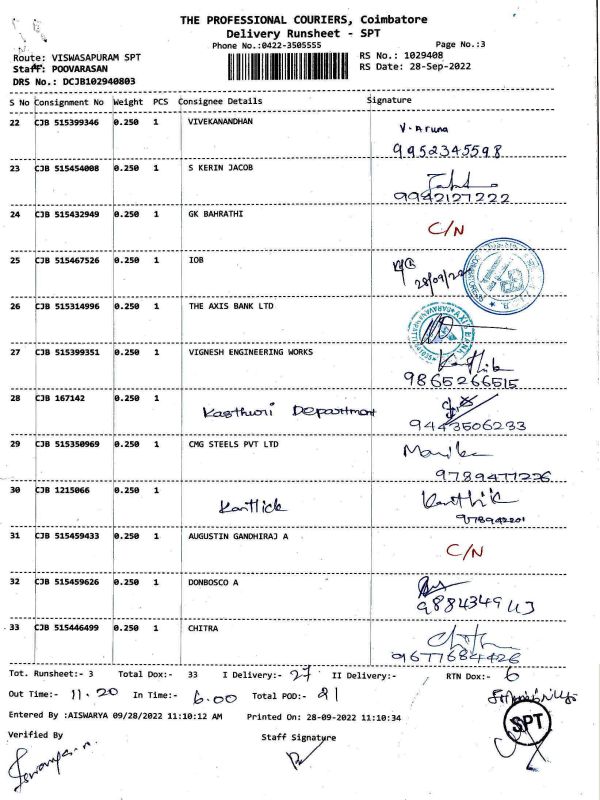 THE PROFESSIONAL COURIERS, Coimbatore
Delivery Runsheet - SPT
Phone No.:0422-3505555 Page No.:3
Route: VISWASAPURAM SPT RS No.: 1029408
Staff: POOVARASAN RS Date: 28-Sep-2022
DRS No.: DCJB102940803
S No Consignment No Weight PCS Consignee Details Signature
22 CJB 515399346 0.250 1 VIVEKANANDHAN V. Aruna
9952345598
23 CJB 515454008 0.250 1 S KERIN JACOB
9942127222
24 CJB 515432949 0.250 1 GK BAHRATHI C/N
25 CJB 515467526 0.250 1 IOB
28/09/22
26 CJB 515314996 0.250 1 THE AXIS BANK LTD
AXIS BANK
27 CJB 515399351 0.250 1 VIGNESH ENGINEERING WORKS Karthik
9865266515
28 CJB 167142 0.250 1 Kasthuri Department
9443506233
29 CJB 515350969 0.250 1 CMG STEELS PVT LTD
9789477226
30 CJB 1215066 0.250 1 Karthick Karthik
31 CJB 515459433 0.250 1 AUGUSTIN GANDHIRAJ A C/N
32 CJB 515459626 0.250 1 DONBOSCO A
9884349
33 CJB 515446499 0.250 1 CHITRA Chitra
9677684426
Tot. Runsheet:- 3 Total Dox:- 33 I Delivery:- 27 II Delivery:- RTN Dox:- 6
Out Time:- 11.20 In Time:- 6.00 Total POD:- 21
Entered By :AISWARYA 09/28/2022 11:10:12 AM Printed On: 28-09-2022 11:10:34
SPT
Verified By Staff Signature